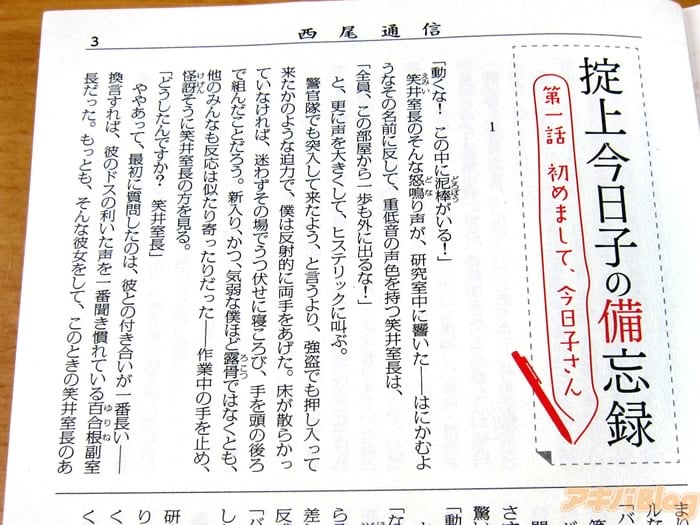 西尾通信
3
掟上今日子の備忘録
第一話 初めまして、今日子さん
1
「動くな! この中に泥棒がいる!」
笑井室長のそんな怒鳴り声が、研究室中に響いた――はにかむよ
うなその名前に反して、重低音の声色を持つ笑井室長は、
「全員、この部屋から一歩も外に出るな!」
と、更に声を大きくして、ヒステリックに叫ぶ。
警官隊でも突入して来たよう、と言うより、強盗でも押し入って
来たかのような迫力で、僕は反射的に両手をあげた。床が散らかっ
ていなければ、迷わずその場でうつ伏せに寝ころび、手を頭の後ろ
で組んだことだろう。新入り、かつ、気弱な僕ほど露骨ではなくとも、
他のみんなも反応は似たり寄ったりだった――作業中の手を止め、
怪訝そうに笑井室長の方を見る。
「どうしたんですか? 笑井室長」
ややあって、最初に質問したのは、彼との付き合いが一番長い――
換言すれば、彼のドスの利いた声を一番聞き慣れている百合根副室
長だった。もっとも、そんな彼女をして、このときの笑井室長のあ
アキバBlog